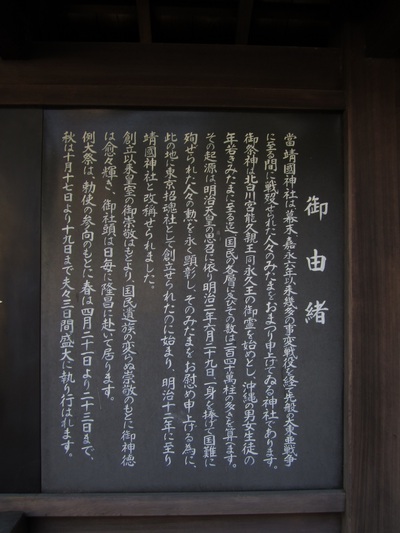 御由緒
當靖國神社は幕末、嘉永六年以来幾多の事変戦役を経て先般の大東亜戦争
に至る間に戦歿せられた人々のみたまをおまつり申上げてゐる神社であります。
御祭神は北白川宮能久親王、同永久王の御霊を始めとし沖縄の男女生徒の
年若きみたまに至る迄、国民の各層に及びその数は二百四十萬柱の多きを算へます。
その起源は明治天皇の思召に依り明治二年六月二十九日一身を捧げて国難に
殉ぜられた人々の勲を永く顕彰し、そのみたまをお慰め申上げる為に、
此の地に東京招魂社として創立せられたのに始まり、明治十二年に至り
靖國神社と改稱せられました。
創立以来皇室の御崇敬はもとより国民遺族の変らぬ崇敬のもとに御神徳
は愈々輝き、御社頭は日毎に隆昌に赴いて居ります。
例大祭は、勅使の参向のもとに春は四月二十一日より二十三日まで、
秋は十月十七日より十九日まで夫々三日間盛大に執り行はれます。